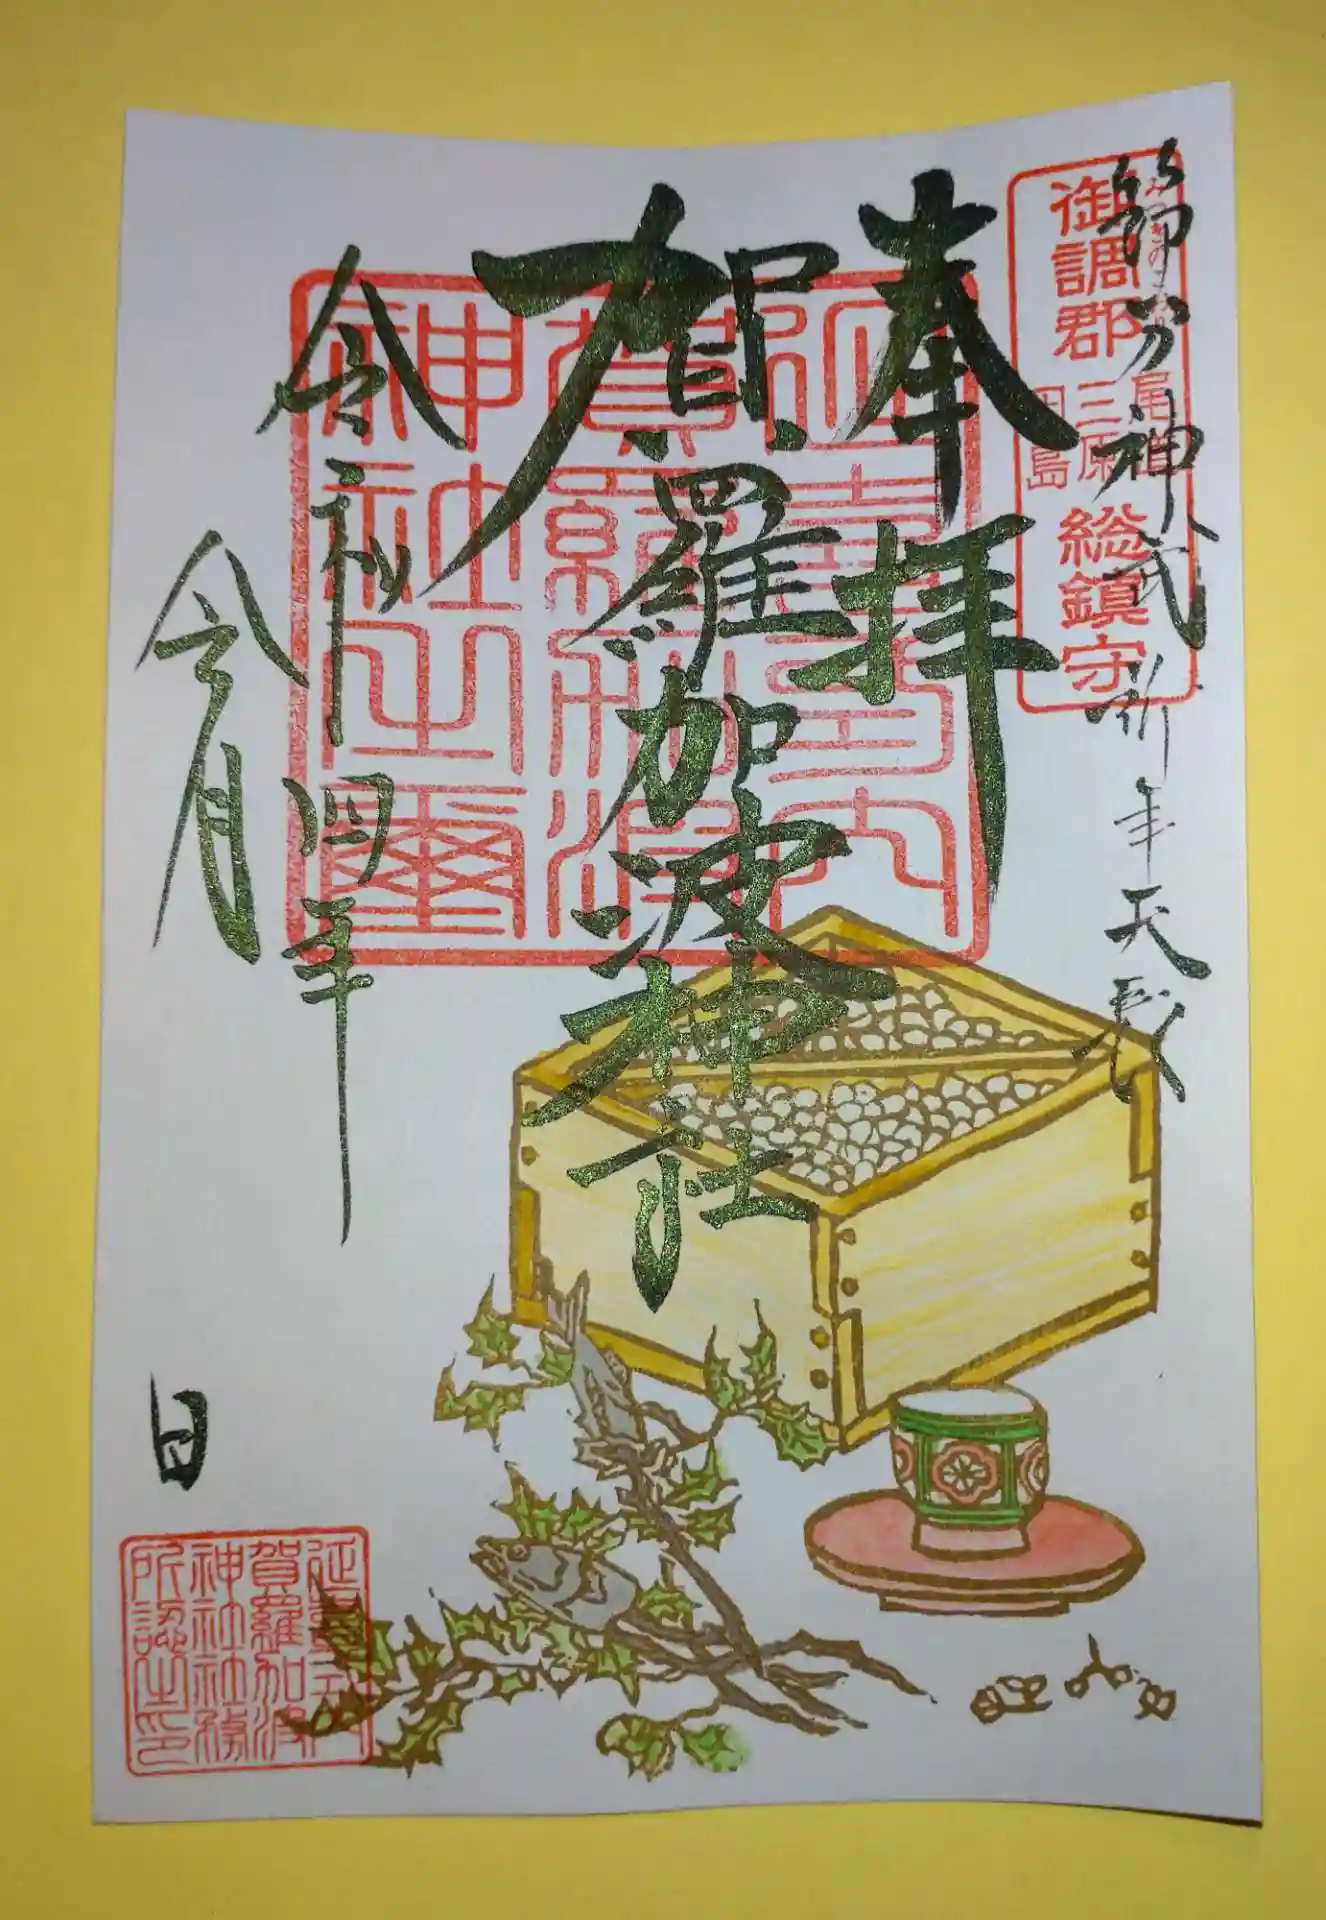 節分神武祈年天長
みつきのこおり
御調郡
尾道
三原
因島
総鎮守
奉拝
賀羅加波神社
延喜式内
賀羅加波
神社之璽
令和四年
令月
日
延喜式内
賀羅加波
神社社務
所認之印